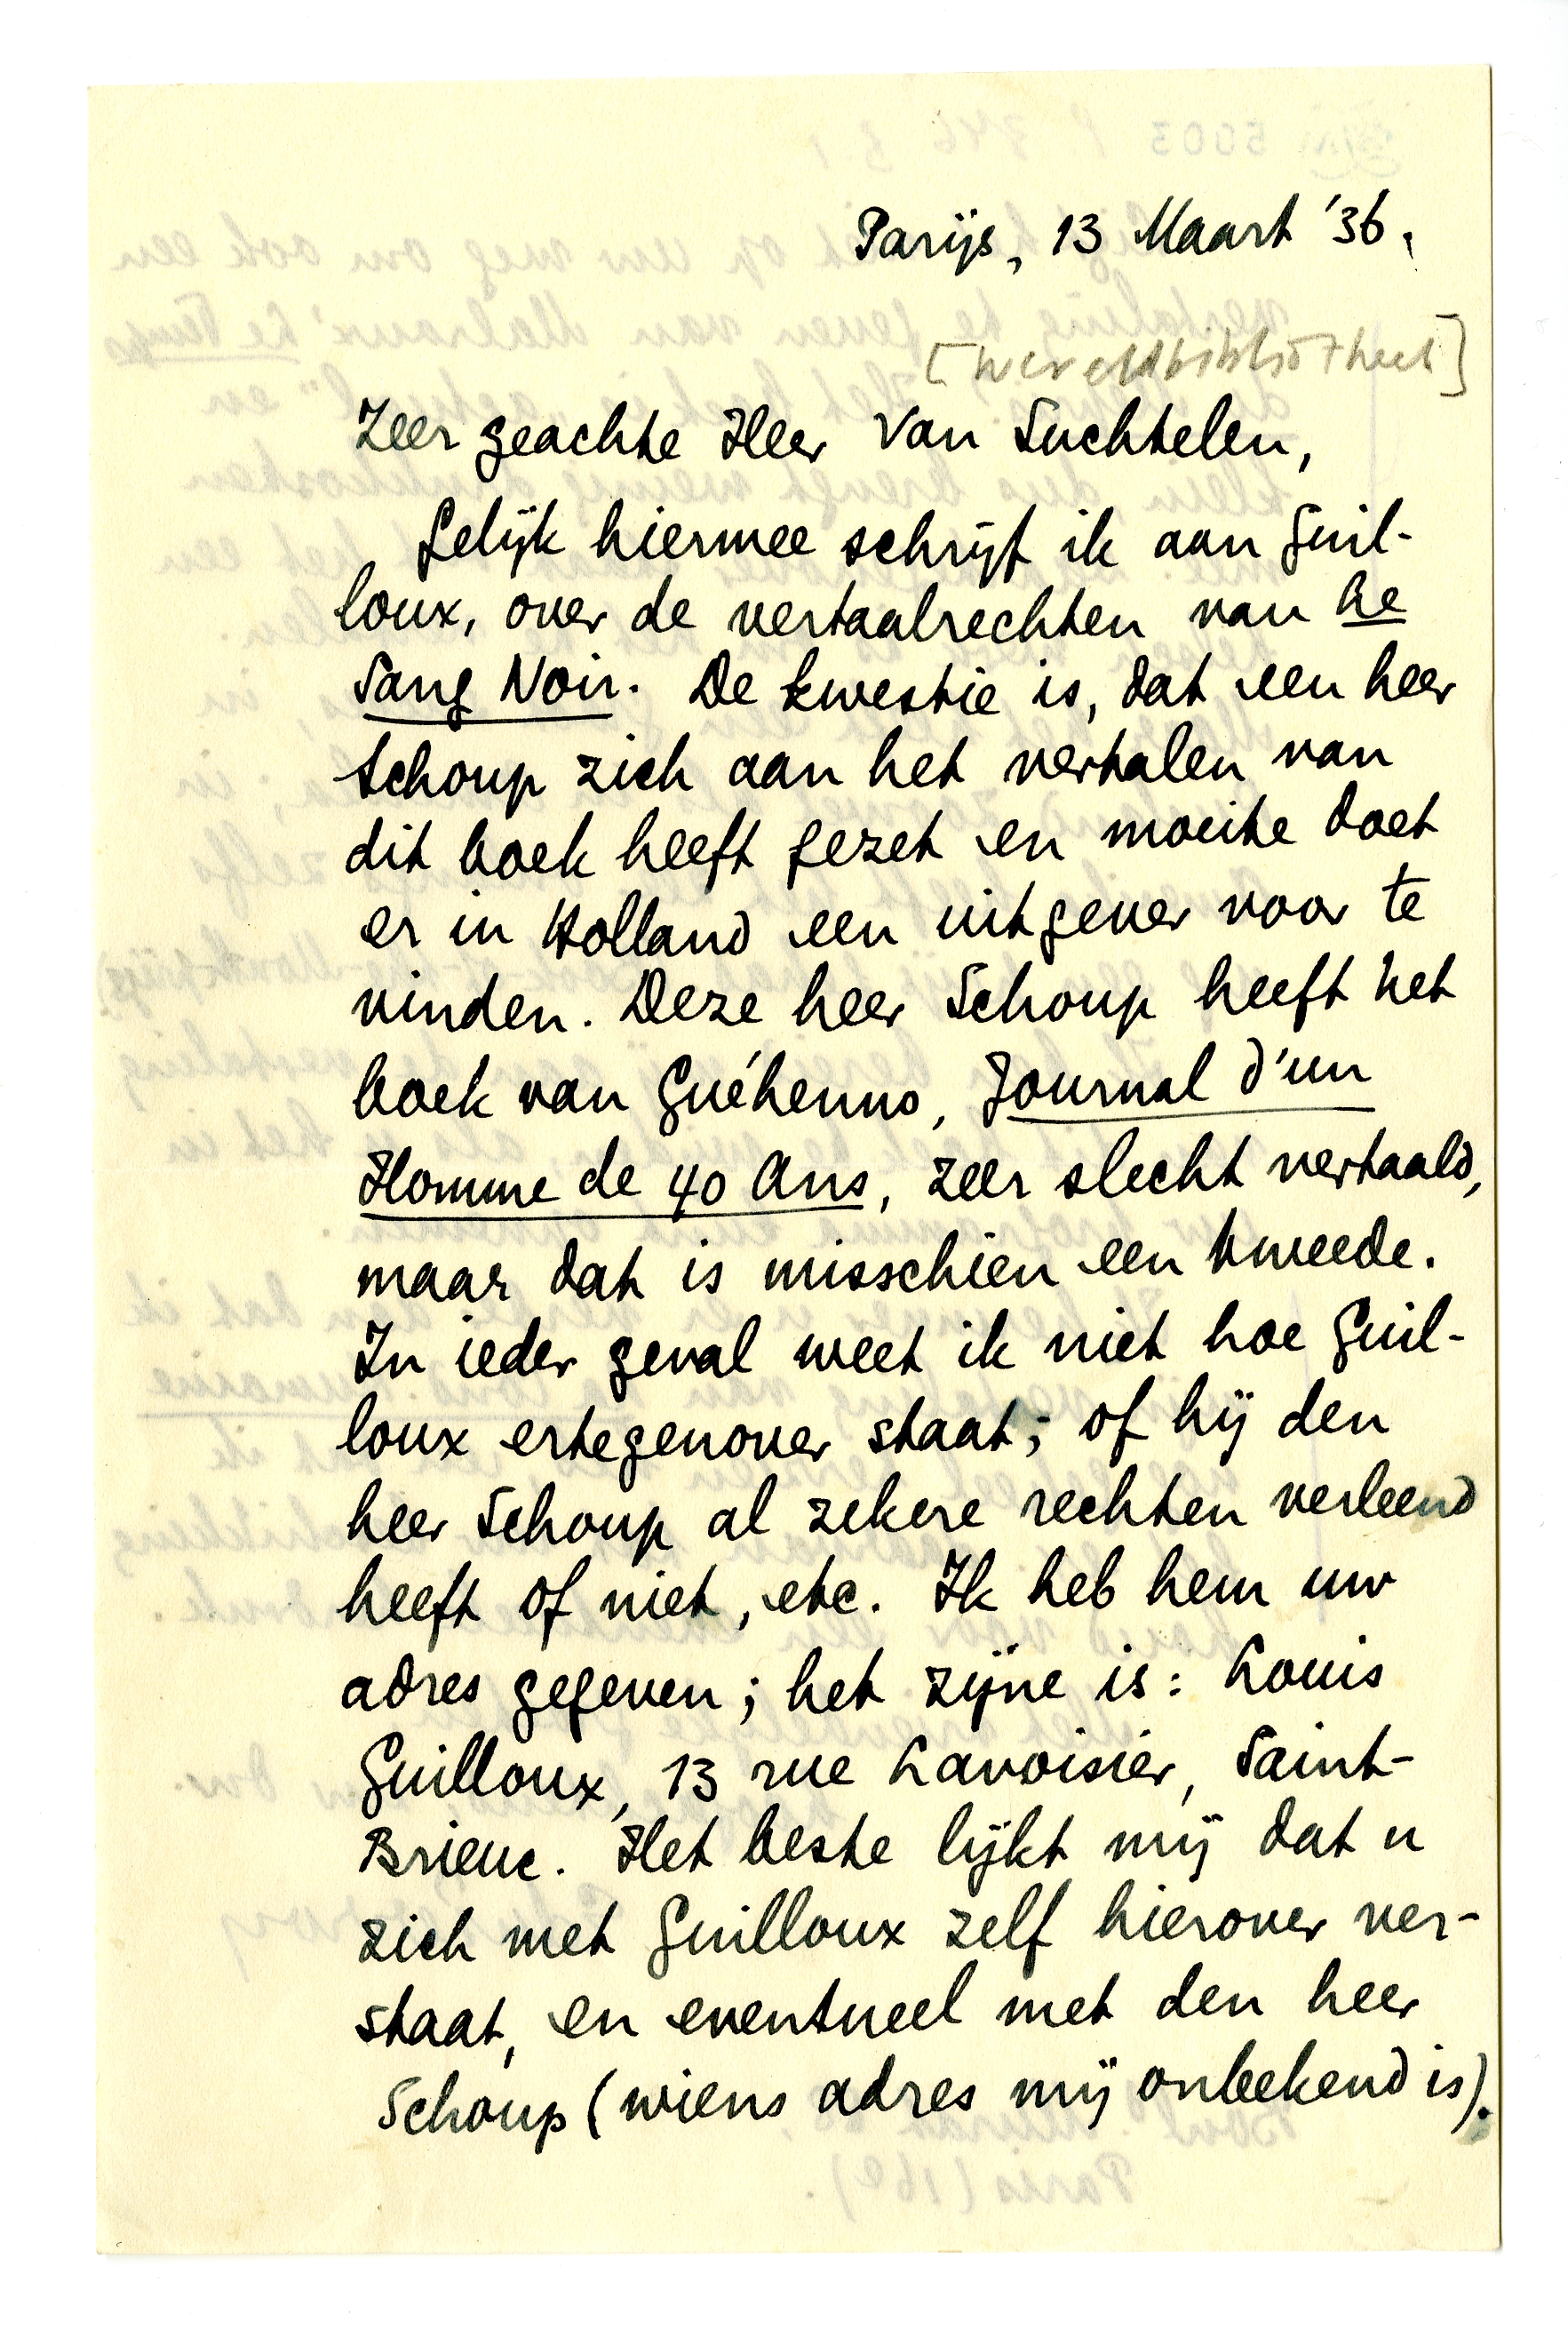 Parijs, 13 Maart '36.
[Wereldbibliotheek]
Zeer geachte Heer Van Suchtelen,
Gelijk hiermee schrijf ik aan Guil-
loux, over de vertaalrechten van Le
Sang Noir. De kwestie is, dat een heer
Schoup zich aan het vertalen van
dit boek heeft gezet en moeite doet
er in Holland een uitgever voor te
vinden. Deze heer Schoup heeft het
boek van Guéhenno, Journal d'un
Homme de 40 Ans, zeer slecht vertaald,
maar dat is misschien een tweede.
In ieder geval weet ik niet hoe Guil-
loux ertegenover staat; of hij den
heer Schoup al zekere rechten verleend
heeft of niet, etc. Ik heb hem uw
adres gegeven; het zijne is: Louis
Guilloux, 13 rue Lavoisier, Saint-
Brieuc. Het beste lijkt mij dat u
zich met Guilloux zelf hierover ver-
staat, en eventueel met den heer
Schoup (wiens adres mij onbekend is).